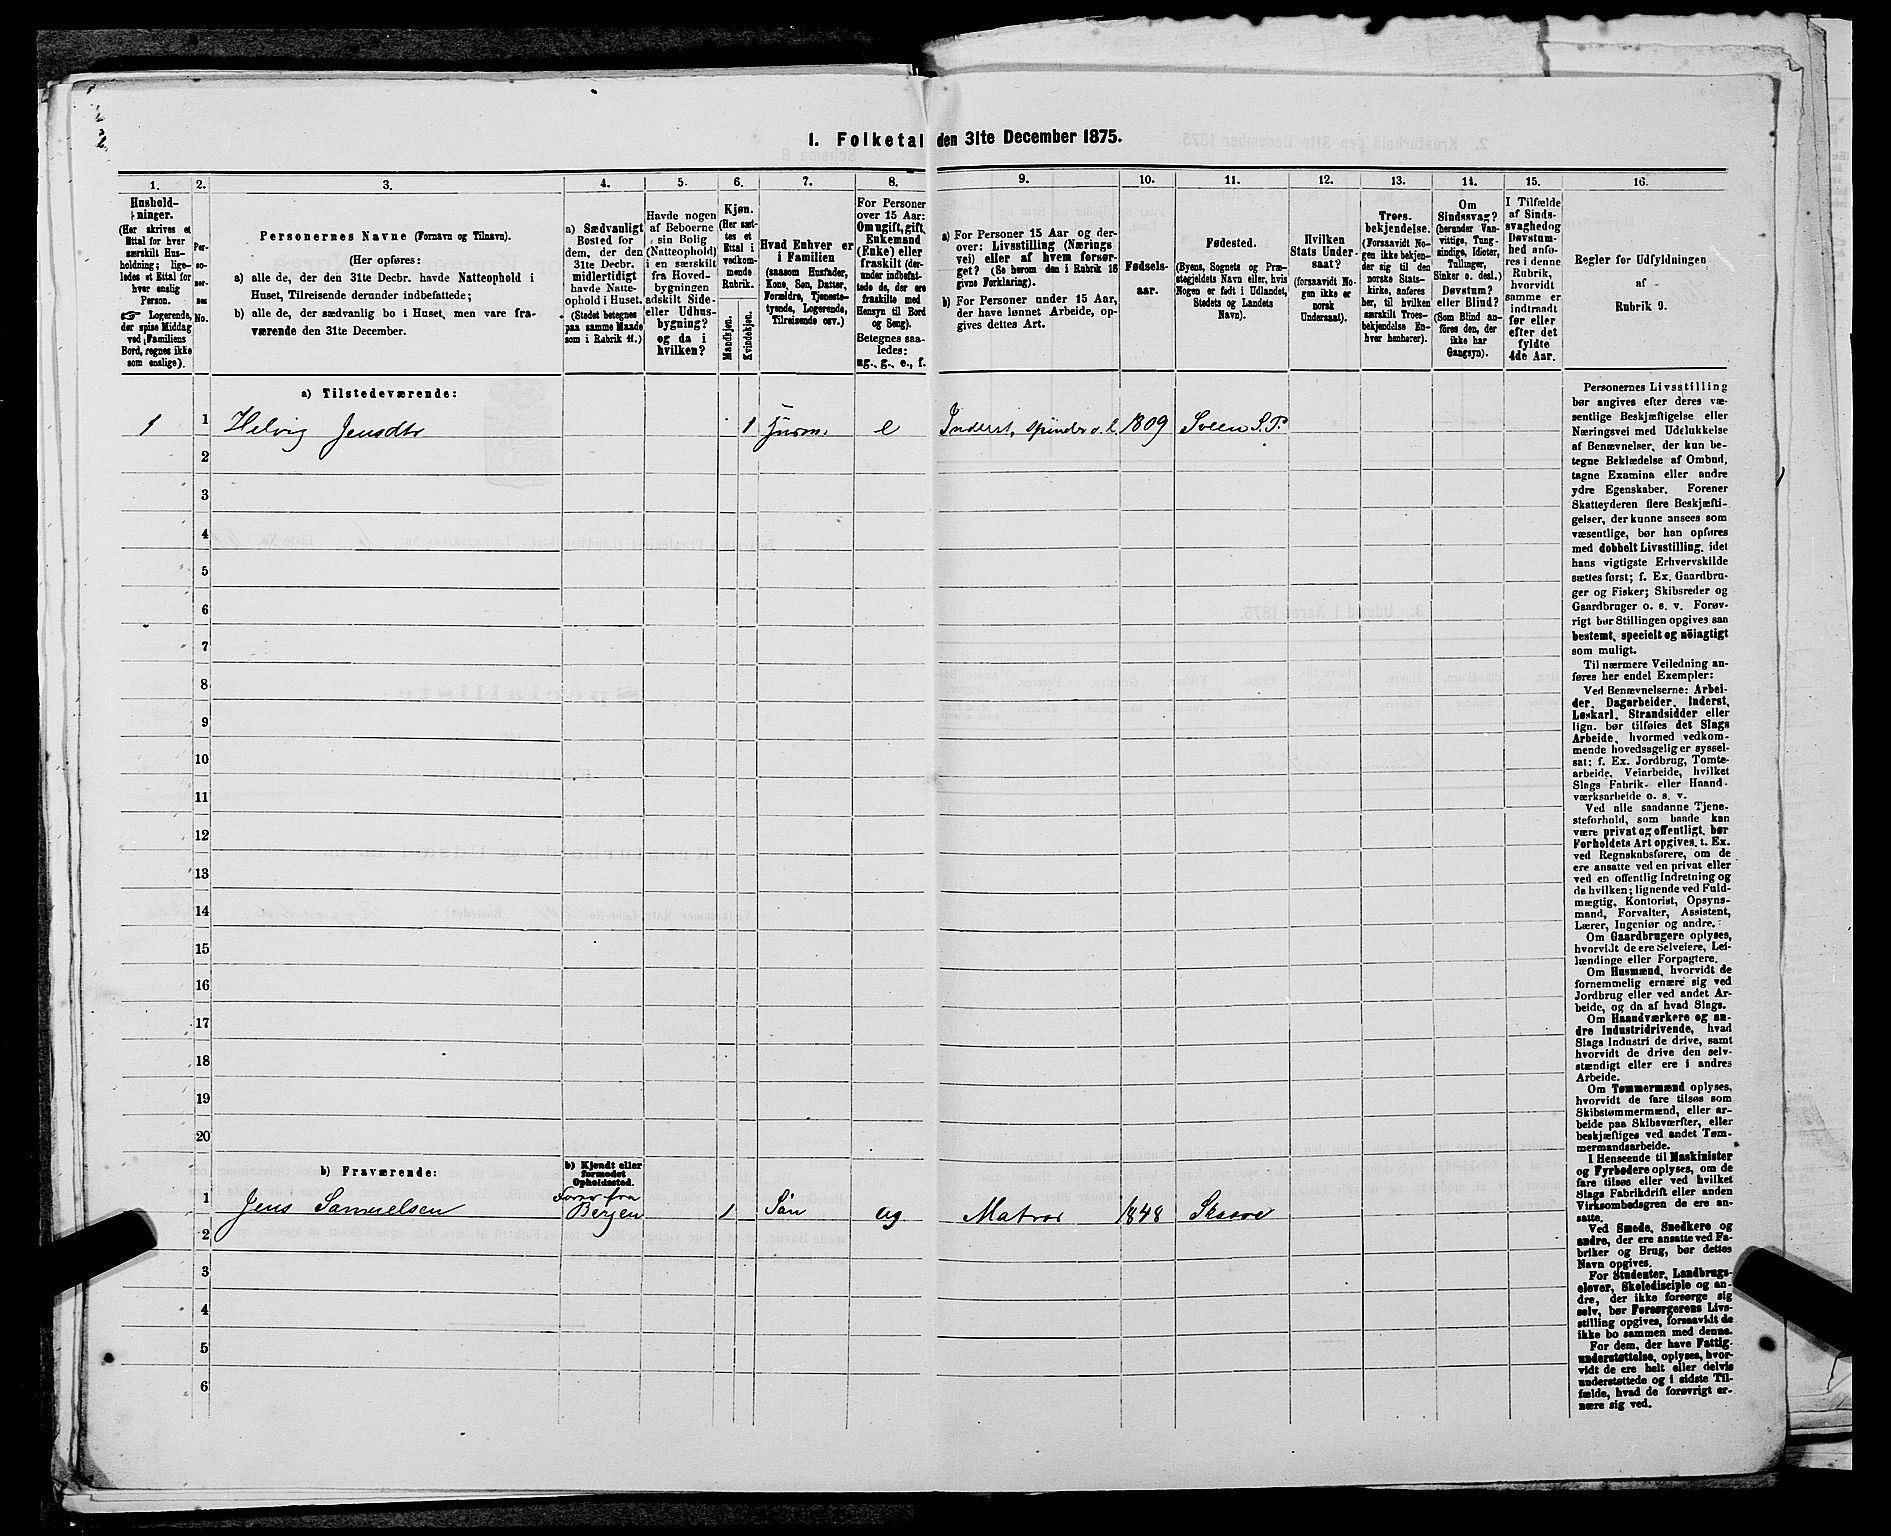 1. Folketal den 31te December 1875.
1. 2. 3. 4. 5. 6. 7. 8. 9. 10. 11. 12. 13. 14. 15. 16.
Hushold-
ninger.
(Her skrives et
Ettal for hver
særskilt Hus-
holdning; lige-
ledes et Ettal for
hver enslig
Person.
☞ Logerende,
der spise Middag
ved Familiens
Bord, regnes ikke
som enslige).
Per-
so-
ner-
nes
No.
Personernes Navne (Fornavn og Tilnavn).
(Her opføres:
a) alle de, der den 31te Decbr. havde Natteophold i
Huset, Tilreisende derunder indbefattede;
b) alle de, der sædvanlig bo i Huset, men vare fra-
værende den 31te December.
a) Sædvanligt
Bosted for
dem, der den
31te Decbr.
midlertidigt
havde Natte-
ophold i Huset.
(Stedet betegnes
paa samme Maade
som i Rubrik 11.)
Havde nogen
af Beboerne
sin Bolig
(Natteophold)
i en særskilt
fra Hoved-
bygningen
adskilt Side-
eller Udhus-
bygning?
og da i
hvilken?
Kjøn.
(Her sæt-
tes et
Ettal i
vedkom-
mende
Rubrik.
Mandkjøn.
Kvindekjøn.
Hvad Enhver er
i Familien
(saasom Husfader,
Kone, Søn, Datter,
Forældre, Tjeneste-
tyende, Logerende,
Tilreisende osv.)
For Personer
over 15 Aar:
Om ugift, gift,
Enkemand
(Enke) eller
fraskilt (der-
under indbefat-
tede de, der ere
fraskilte med
Hensyn til Bord
og Seng).
Betegnes saa-
ledes:
ug., g., e., f.
a) For Personer 15 Aar og der-
over: Livsstilling (Nærings
vei) eller af hvem forsør-
get? (Se herom den i Rubrik 16
givne Forklaring).
b) For Personer under 15 Aar,
der have lønnet Arbeide, op-
gives dettes Art.
Fødsels-
aar.
Fødested.
(Byens, Sognets og Præ-
stegjeldets Navn eller, hvis
Nogen er født i Udlandet,
Stedets og Landets
Navn).
Hvilken
Stats Under-
saat?
(forsaavidt No-
gen ikke er
norsk
Undersaat).
Troes-
bekjendelse.
(Forsaavidt No-
gen ikke bekjen-
der sig til den
norske Stats-
kirke, anføres
her, til hvilken
særskilt Troes-
bekjendelse En-
hver henhører).
Om
Sindssvag?
(herunder Van-
vittige, Tung-
sindige, Idioter,
Tullinger,
Sinker o. desl.)
Døvstum?
eller Blind?
(Som Blind an-
føres den, der
ikke har
Gangsyn).
I Tilfælde
af Sinds-
svaghed og
Døvstum-
hed anfø-
res i denne
Rubrik,
hvorvidt
samme er
indtraadt
før eller
efter det
fyldte
4de Aar.
Regler for Udfyldningen
af
Rubrik 9.
a) Tilstedeværende:
1 1 Helvig Jensdtr 1 Husm. e Inderst, spinder o. l. 1809 Sveen S. P.
2
3
4
5
6
7
8
9
10
11
12
13
14
15
16
17
18
19
20
b) Fraværende:
b) Kjendt eller
formodet
Opholdssted.
1 Jens Samuelsen Farer fra
Bergen 1 Søn ug Matros 1848 Skaare
2
3
4
5
6
Personernes Livsstilling
bør angives efter deres væ-
sentlige Beskjæftigelse eller
Næringsvei med Udelukkelse
af Benævnelser, der kun be-
tegne Beklædelse af Ombud,
tagne Examina eller andre
ydre Egenskaber. Forener
Skatteyderen flere Beskjæfti-
gelser, der kunne ansees som
væsentlige, bør han opføres
med dobbelt Livsstilling, idet
hans vigtigste Erhvervskilde
sættes først; f. Ex. Gaardbru-
ger og Fisker; Skibsreder og
Gaardbruger o. s. v. Forøv-
rigt bør Stillingen opgives saa
bestemt, specielt og nöiagtigt
som muligt.
Til nærmere Veiledning an-
føres her endel Exempler:
Ved Benævnelserne: Arbei-
der, Dagarbeider, Inderst,
Løskarl, Strandsidder eller
lign. bør tilføies det Slags
Arbeide, hvormed vedkom-
mende hovedsagelig er syssel-
sat: f. Ex. Jordbrug, Tomte-
arbeide, Veiarbeide, hvilket
Slags Fabrik- eller Haand-
værksarbeide o. s. v.
Ved alle saadanne Tjene-
steforhold, som baade kan
være privat og offentligt, bør
Forholdets Art opgives, t. Ex.
ved Regnskabsførere, om de
ere ansatte ved en privat eller
ved en offentlig Indretning og
da hvilken; lignende ved Fuld-
mægtig, Kontorist, Opsyns-
mand, Forvalter, Assistent,
Lærer, Ingeniør og andre.
Om Gaardbrugere oplyses,
hvorvidt de ere Selveiere, Lei-
lændinge eller Forpagtere.
Om Husmænd, hvorvidt de
fornemmelig ernære sig ved
Jordbrug eller ved andet Ar-
beide, og da af hvad Slags.
Om Haandværkere og an-
dre Industridrivende, hvad
Slags Industri de drive, samt
hvorvidt de drive den selv-
stændigt eller ere i andres
Arbeide.
Om Tømmermænd oplyses,
hvorvidt de fare tilsøs som
Skibstømmermænd, eller ar-
beide paa Skibsværfter, eller
beskjæftiges ved andet Tøm-
mermandsarbeide.
I Henseende til Maskinister
og Fyrbødere oplyses, om de
fare tilsøs eller ved hvilket
Slags Fabrikdrift eller anden
Virksombedsgren de ere an-
satte.
Ved Smede, Snedkere og
andre, der ere ansatte ved Fa-
briker og Brug, bør dettes
Navn opgives.
For Studenter, Landbrugs-
elever, Skoledisciple og an-
dre, der ikke forsørge sig
selv, bør Forsørgerens Livs-
stilling opgives, forsaavidt de
ikke bo sammen med denne.
For dem, der have Fattig-
understøttelse, oplyses, hvor-
vidt de ere helt eller delvis
understøttede og i sidste Til-
fælde, hvad de forøvrigt er-
nære sig ved.